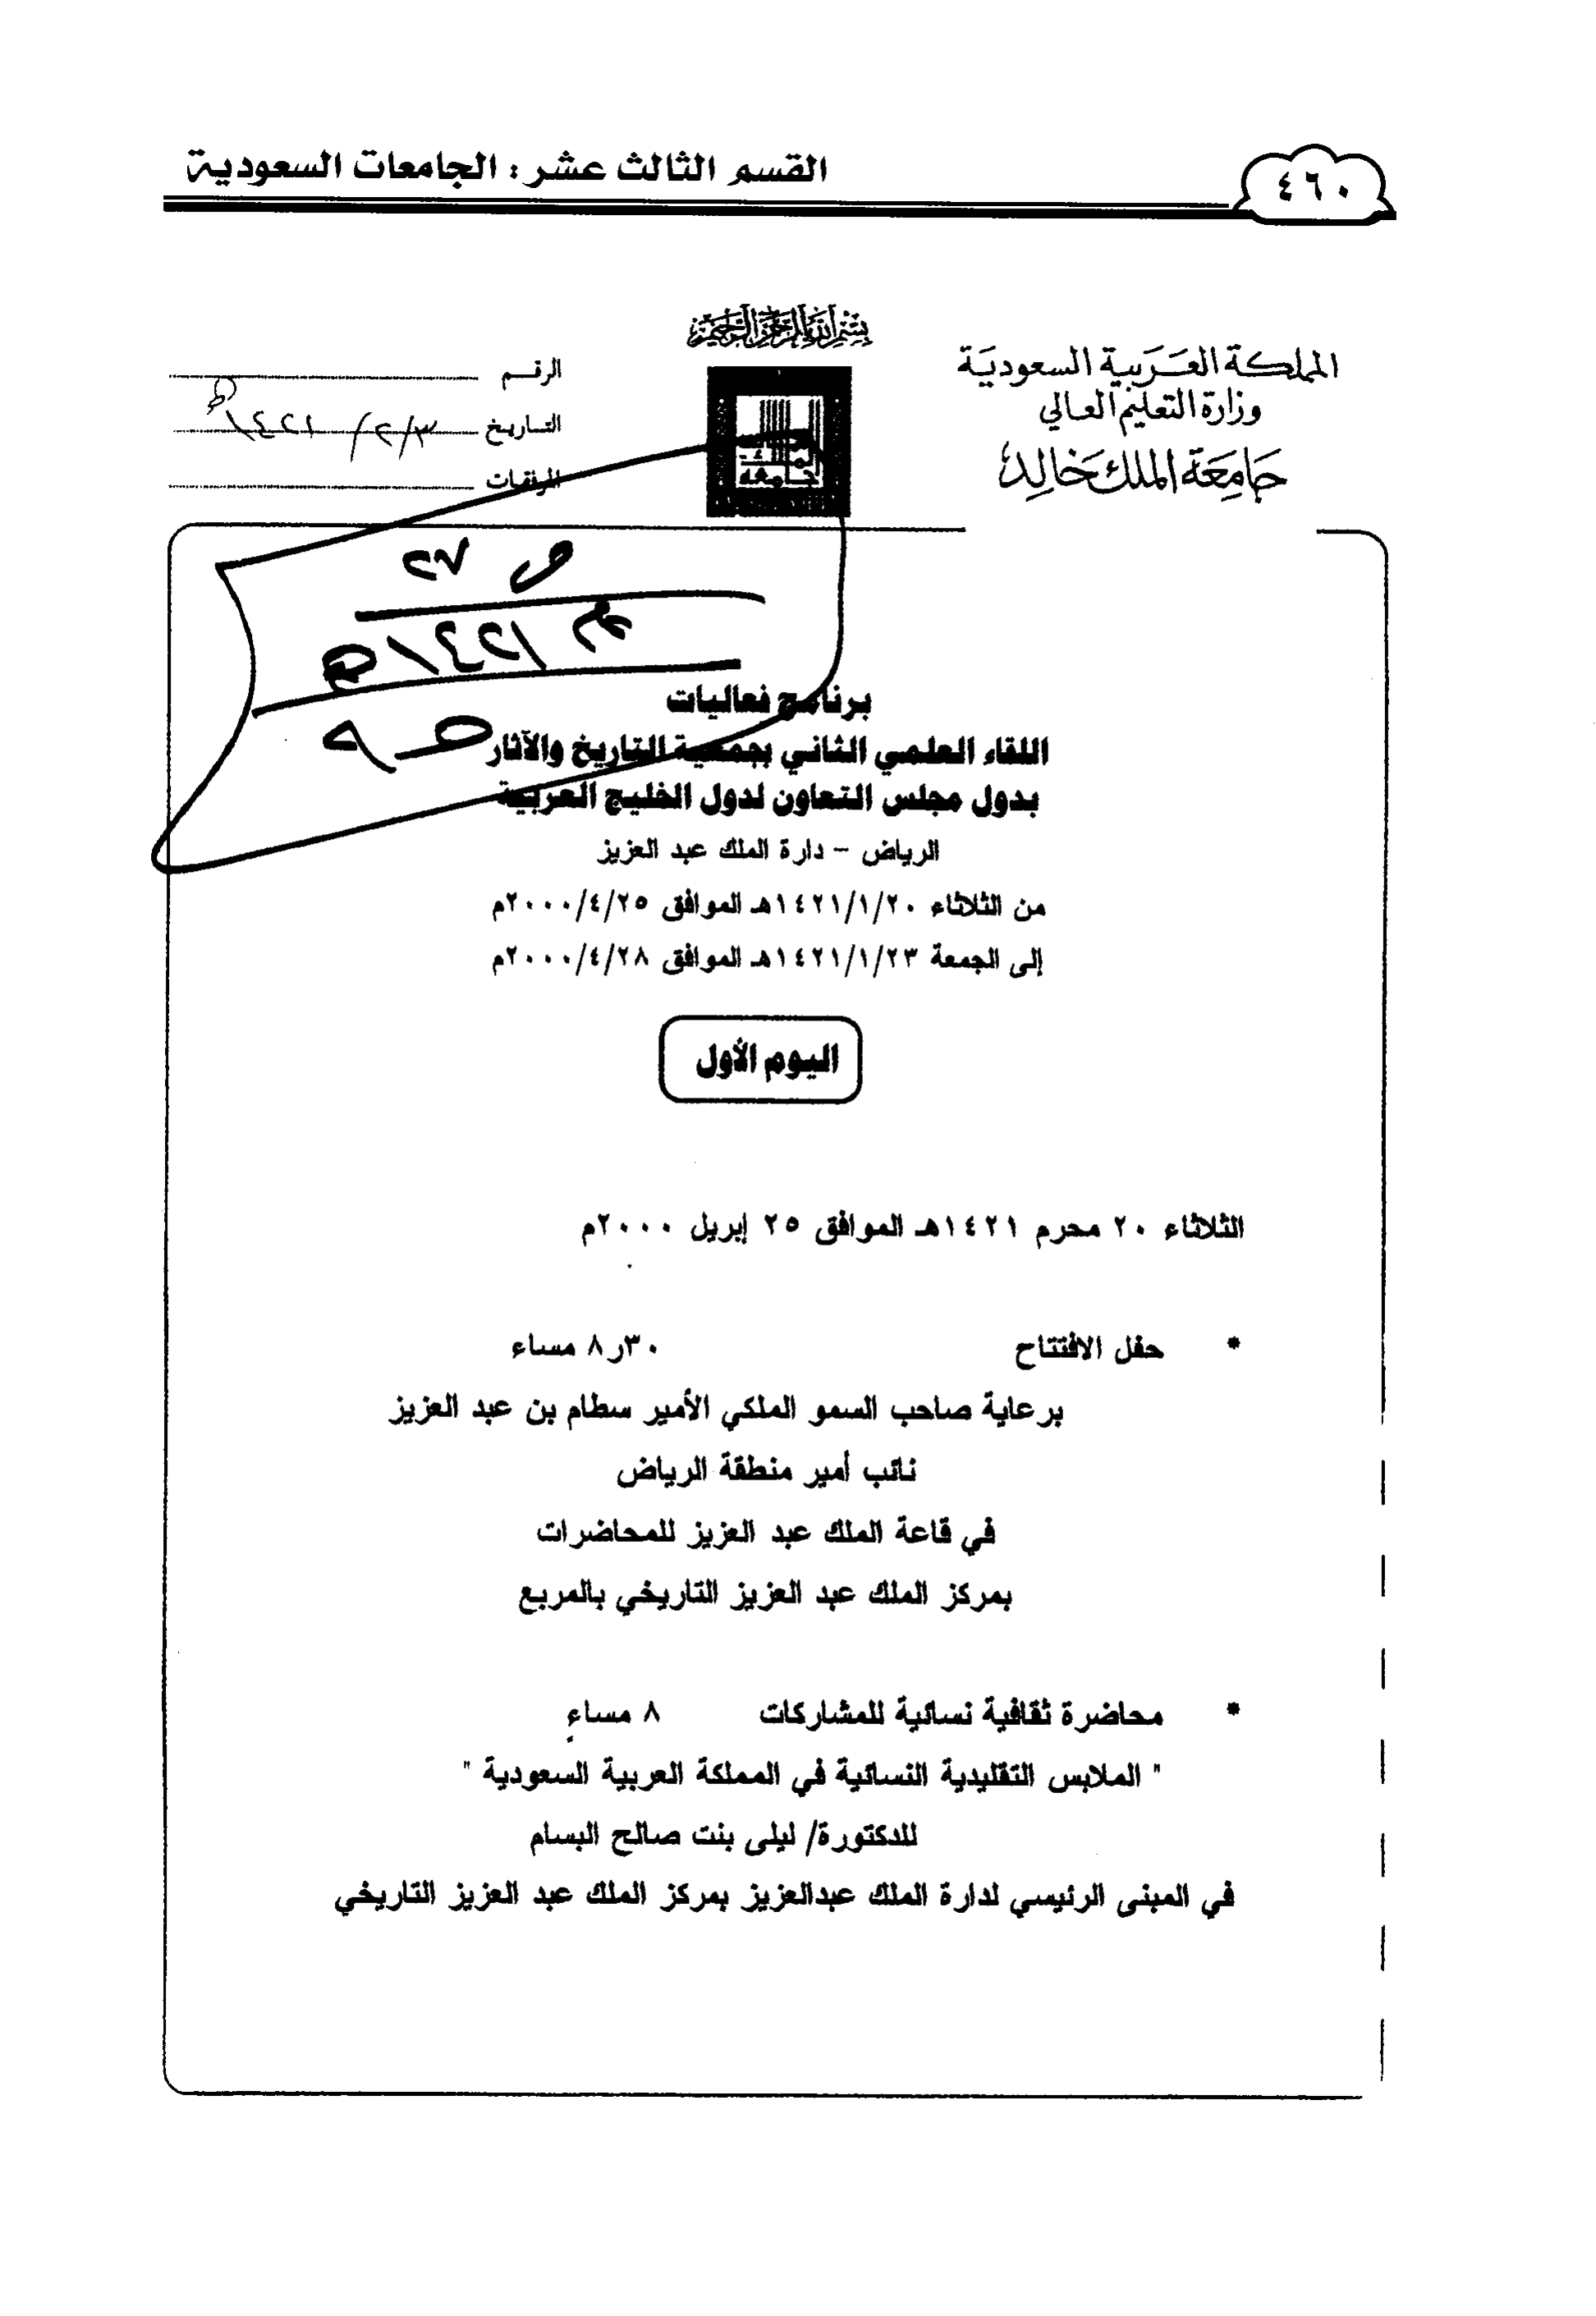 القسم الثالث عشر : الجامعات السعودية
٤٦٠
بسم الله الرحمن الرحيم
المملكة العربية السعودية
وزارة التعليم العالي
جامعة الملك خالد
الرقم
التاريخ ٣/٢/ ١٤٢١هـ
المرفقات
برنامج فعاليات
اللقاء العلمي الثاني بجمعية التاريخ والآثار
بدول مجلس التعاون لدول الخليج العربية
الرياض - دارة الملك عبد العزيز
من الثلاثاء ١٤٢١/١/٢٠هـ الموافق ٢٠٠٠/٤/٢٥م
إلى الجمعة ١٤٢١/١/٢٣هـ الموافق ٢٠٠٠/٤/٢٨م
اليوم الأول
الثلاثاء ٢٠ محرم ١٤٢١هـ الموافق ٢٥ إبريل ٢٠٠٠م
* حفل الافتتاح ٣٠ر٨ مساء
برعاية صاحب السمو الملكي الأمير سطام بن عبد العزيز
نائب أمير منطقة الرياض
في قاعة الملك عبد العزيز للمحاضرات
بمركز الملك عبد العزيز التاريخي بالمربع
* محاضرة ثقافية نسائية للمشاركات ٨ مساء
" الملابس التقليدية النسائية في المملكة العربية السعودية "
للدكتورة/ ليلى بنت صالح البسام
في المبنى الرئيسي لدارة الملك عبدالعزيز بمركز الملك عبد العزيز التاريخي